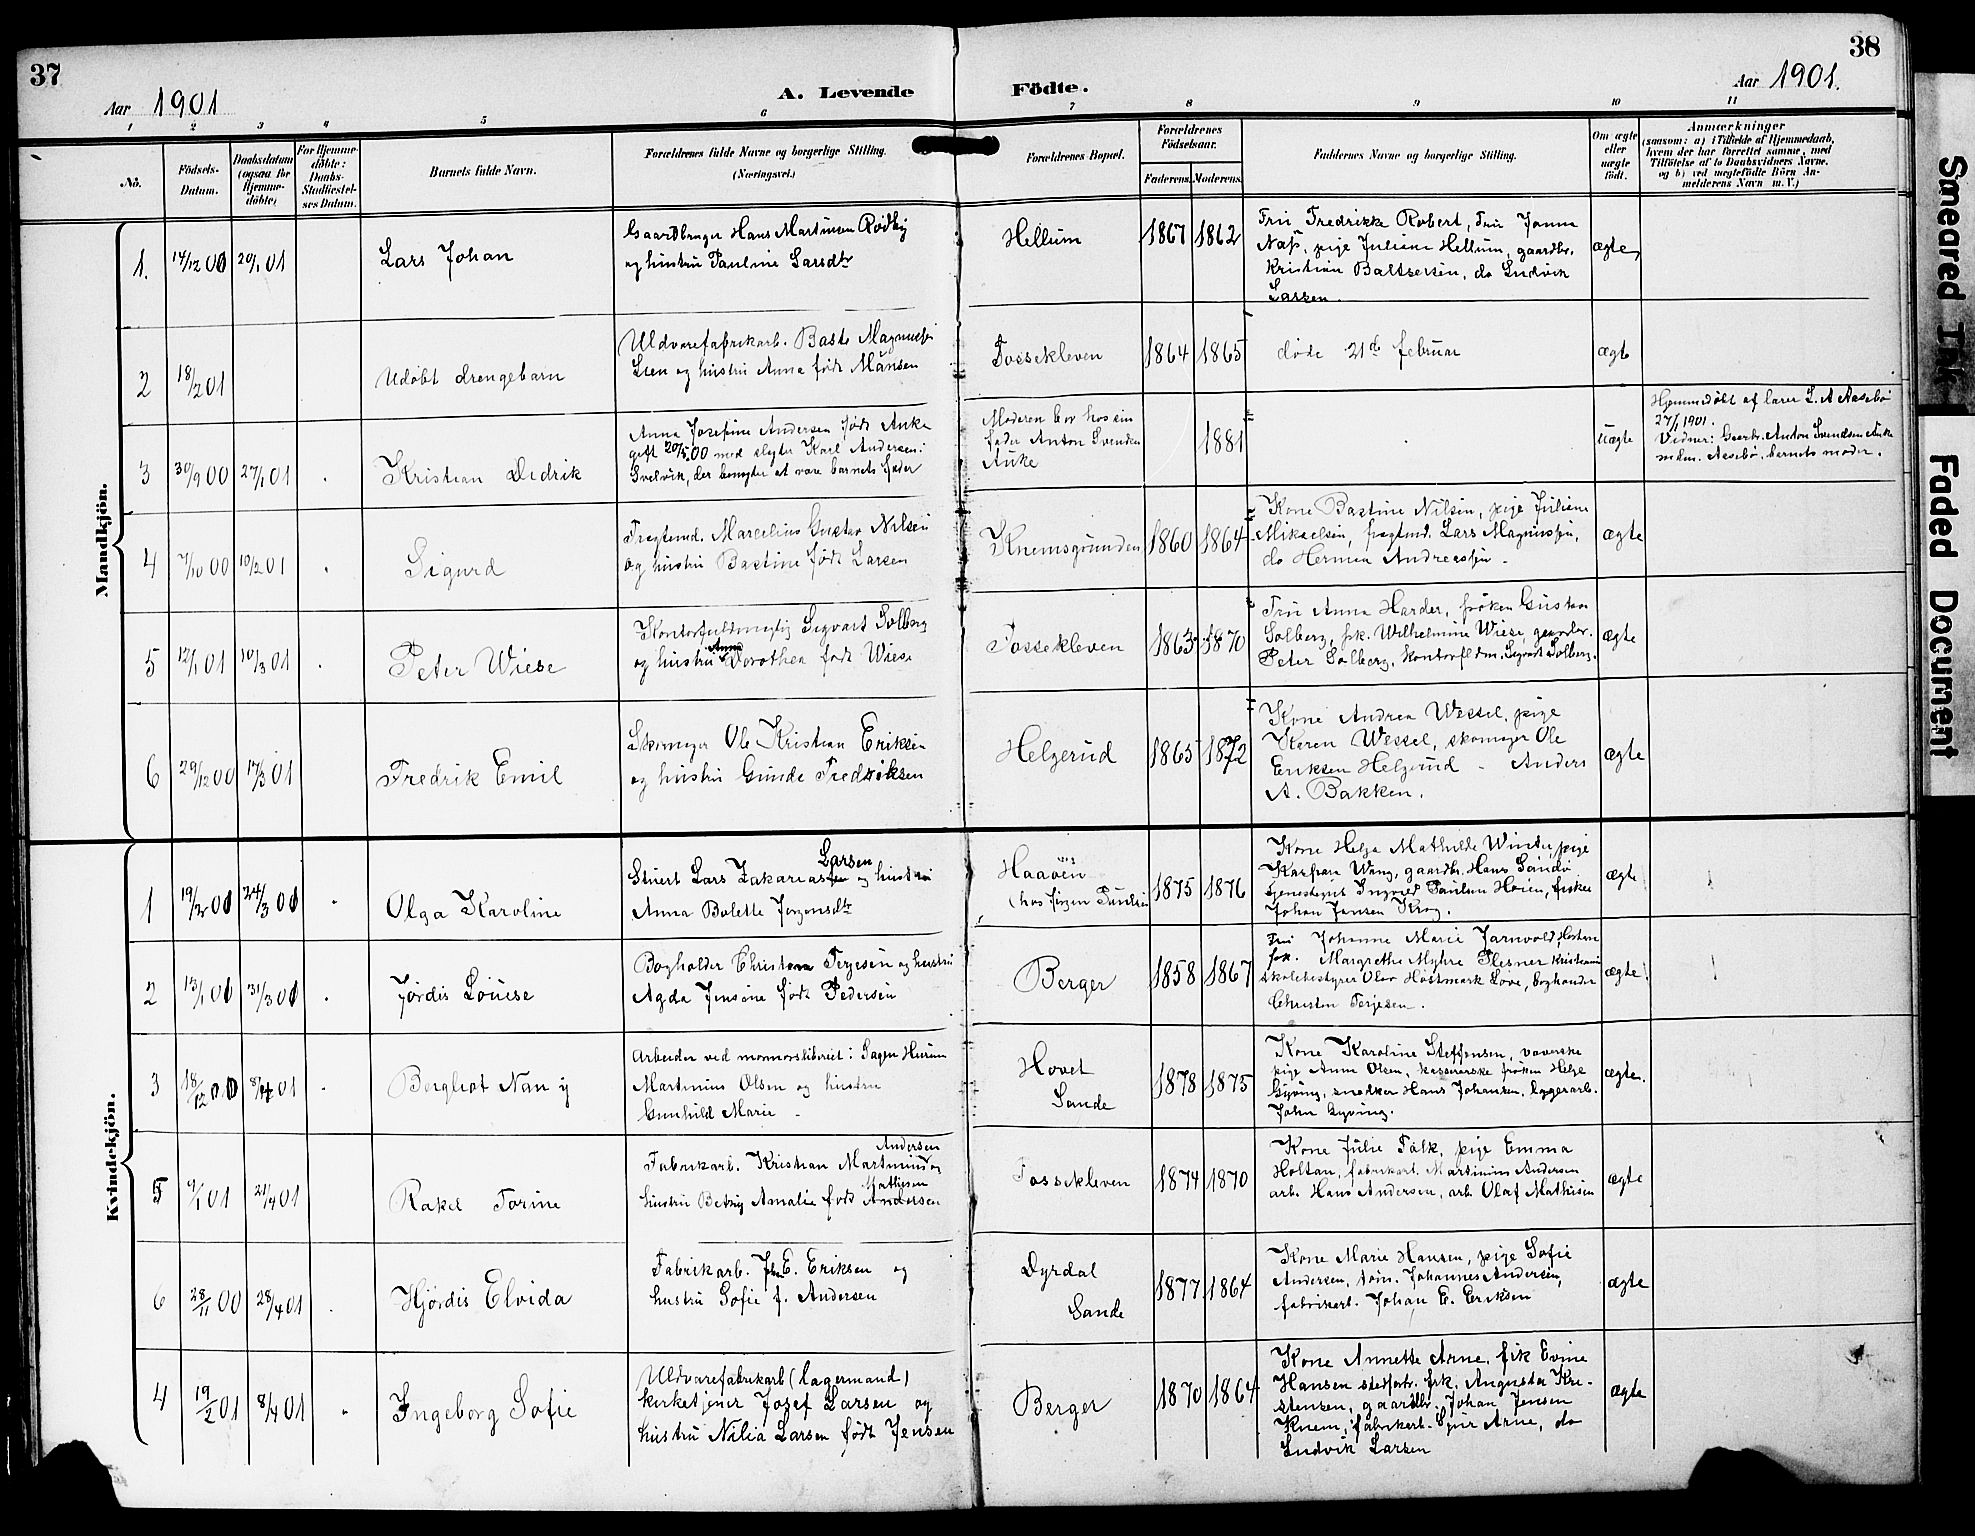 37
38
Aar 1901
A. Levende
Födte.
Aar 1901.
1 2 3 4 5 6 7 8 9 10 11
Nö.
Födsels-
Datum.
Daabsdatum
(ogsaa for
Hjemme-
döbte)
For Hjemme-
döbte:
Daabs-
Stadfæstel-
ses Datum.
Barnets fulde Navn.
Forældrenes fulde Navne og borgerlige Stilling.
(Næringsvei.)
Forældrenes Bopæl.
Forældrenes
Födselsaar.
Faderens. Moderens.
Faddernes Navne og borgerlige Stilling.
Om ægte
eller
uægte
födt.
Anmærkninger
(saasom: a) i Tilfælde af Hjemmedaab,
hvem der har forrettet samme, med
Tilföielse af to Daabsvidners Navne.
og b) ved uægtefödte Börn An-
melderens Navn m. V.)
Mandkjön.
1. 14/12 00 20/1 01 Lars Johan
Gaardbruger Hans Martinsen Rødby
og hustru Pauline Larsdtr
Hellum 1867 1862
Fru Fredrikke Robert, Fru Janna
Næss, pige Juliane Hellum, gaardbr.
Kristian Baltsersen, do Ludvik
Larsen.
ægte
2 18/2 01 Udöbt drengebarn
Uldvarefabrikarb. Bastı Magnussen
Lien og hustru Anna født Månsen
Fossekleven 1864 1865
døde 21de februar
ægte
3 30/9 00 27/1 01 Kristian Dedrik
Anna Josefine Andersen født Auke
gift 20/5 00 med slagter Karl Andersen i
Svelvik, der benegter at være barnets fader
Moderen bor hos sin
fader Anton Svendsen
Auke
1881
Uægte
Hjemmedöbt af lærer L. A Aasebö
27/1 1901.
Vidner: Gaarbr. Anton Svendsen Auke
mdm. Aasebö, barnets moder.
4 7/10 00 10/2 01 Sigurd
Fragtemd. Marcelius Gustav Nilsen
og hustru Bastine født Larsen
Knemsgrunden 1860 1864
Kone Bastine Nilsen, pige Juliane
Mikaelsen, fragtmd. Lars Magnussen,
do Herman Andreassen.
ægte
5 12/1 01 10/3 01 Peter Wiese
Kontorfuldmegtig Sigvart Solberg
og hustru Anna Dorothea født Wiese
Fossekleven 1863 1870
Fru Anna Harder, frøken Gustava
Solberg, frk. Wilhelmine Wiese, gaardbr.
Peter Solberg, kontorfldm. Sigvart Solberg.
ægte
6 29/12 00 17/3 01 Fredrik Emil
Skomager Ole Kristian Eriksen
og hustru Gunda Fredriksen
Helgerud 1865 1872
Kone Andrea Wessel, pige
Karen Wessel, skomager Ole
Eriksen Helgerud - Anders
A. Bakken.
ægte
Kvindekjön.
1 19/2 00 24/3 00 Olga Karoline
Larsen
Stuert Lars Zakariassen og hustru
Anna Bolette Jørgensdtr
Haaøen
(hos Jørgen Paulsen
1875 1876
Kone Helga Mathilde Winter, pige
Wang, gaardbr. Hans Sandø
tjenestepige Ingvald Paulsen Høien, fisker
Johan Jensen Krog.
ægte
2 13/1 00 31/3 01 Jørdis Louise
Bogholder Christen Terjesen og hustru
Agda Jensine født Pedersen
Berger 1858 1867
Fru Johanne Marie Jarnvold, Horten
frk. Margrethe Myhre Plesner Kristiania
skolebestyrer Olav Høstmark Love, boghandler
Christen Terjesen.
ægte
3 18/12 00 8/4 01 Borghot Nanny
Arbeider ved mormorsliberiet i Sagen Hurum
Martinius Olsen og hustru
Gunhild Marie
Hovet
Sande
1878 1875
Kone Karoline Steffensen, væverske
pige Anna Olsen, kassererske frøken Helga
Gyving, snedker Hans Johansen, byggerarb.
John Gyving.
ægte.
5 9/1 01 21/4 01 Rakel Torine
Andersen
Fabrikarb. Kristian Martinius og
Mathisen
hustru Betsy Amalie født Andersen
Fossekleven 1874 1870
Kone Julie Falk, pige Emma
Holtan, fabrikarb. Martinius Andersen
arb. Hans Andersen, arb. Olaf Mathisen
ægte
6 28/11 00 28/4 01 Hjørdis Elvida
Fabrikarb. Joh. E. Eriksen og
hustru Sofie f. Andersen
Dyrdal
Sande
1877 1864
Kone Marie Hansen, pige Sofie
Andersen, tøm. Johannes Andersen,
fabrikarb. Johan E. Eriksen
ægte
4 19/2 01 8/4 01 Ingeborg Sofie
Uldvarefabrikarb (lagermand)
kirketjener Josef Larsen og
hustru Nilia Larsen født Jensen
Berger 1870 1864
Kone Annette Arne, frk Evine
Hansen stedfortr. frk. Augusta Kri-
stensen, gaardbr. Johan Jensen
Knem, fabrikarb. Sjur Arne, do
Ludvik Larsen
ægte
Smeared Ink
Faded Document